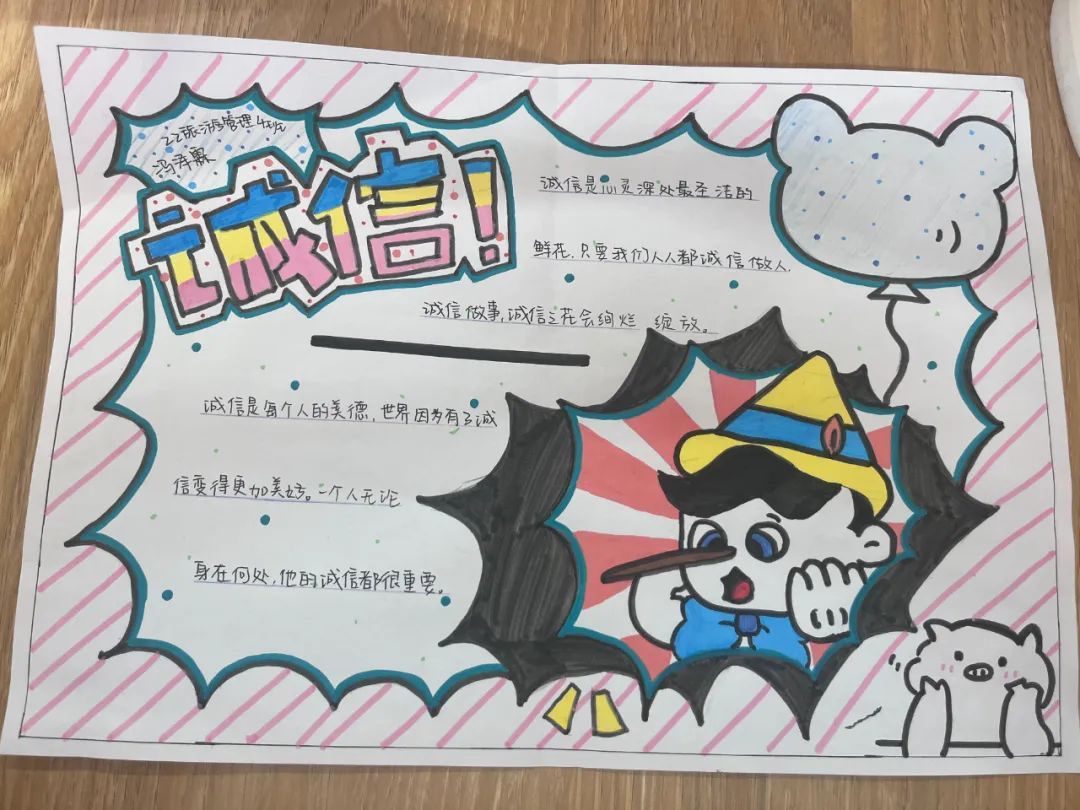 22旅游管理4班
冯泽霖
诚信!
诚信是心灵深处最圣洁的
鲜花,只要我们人人都诚信做人,
诚信做事,诚信之花会绚烂 绽放。
诚信是每个人的美德,世界因为有了诚
信变得更加美好。一个人无论
身在何处,他的诚信都很重要。